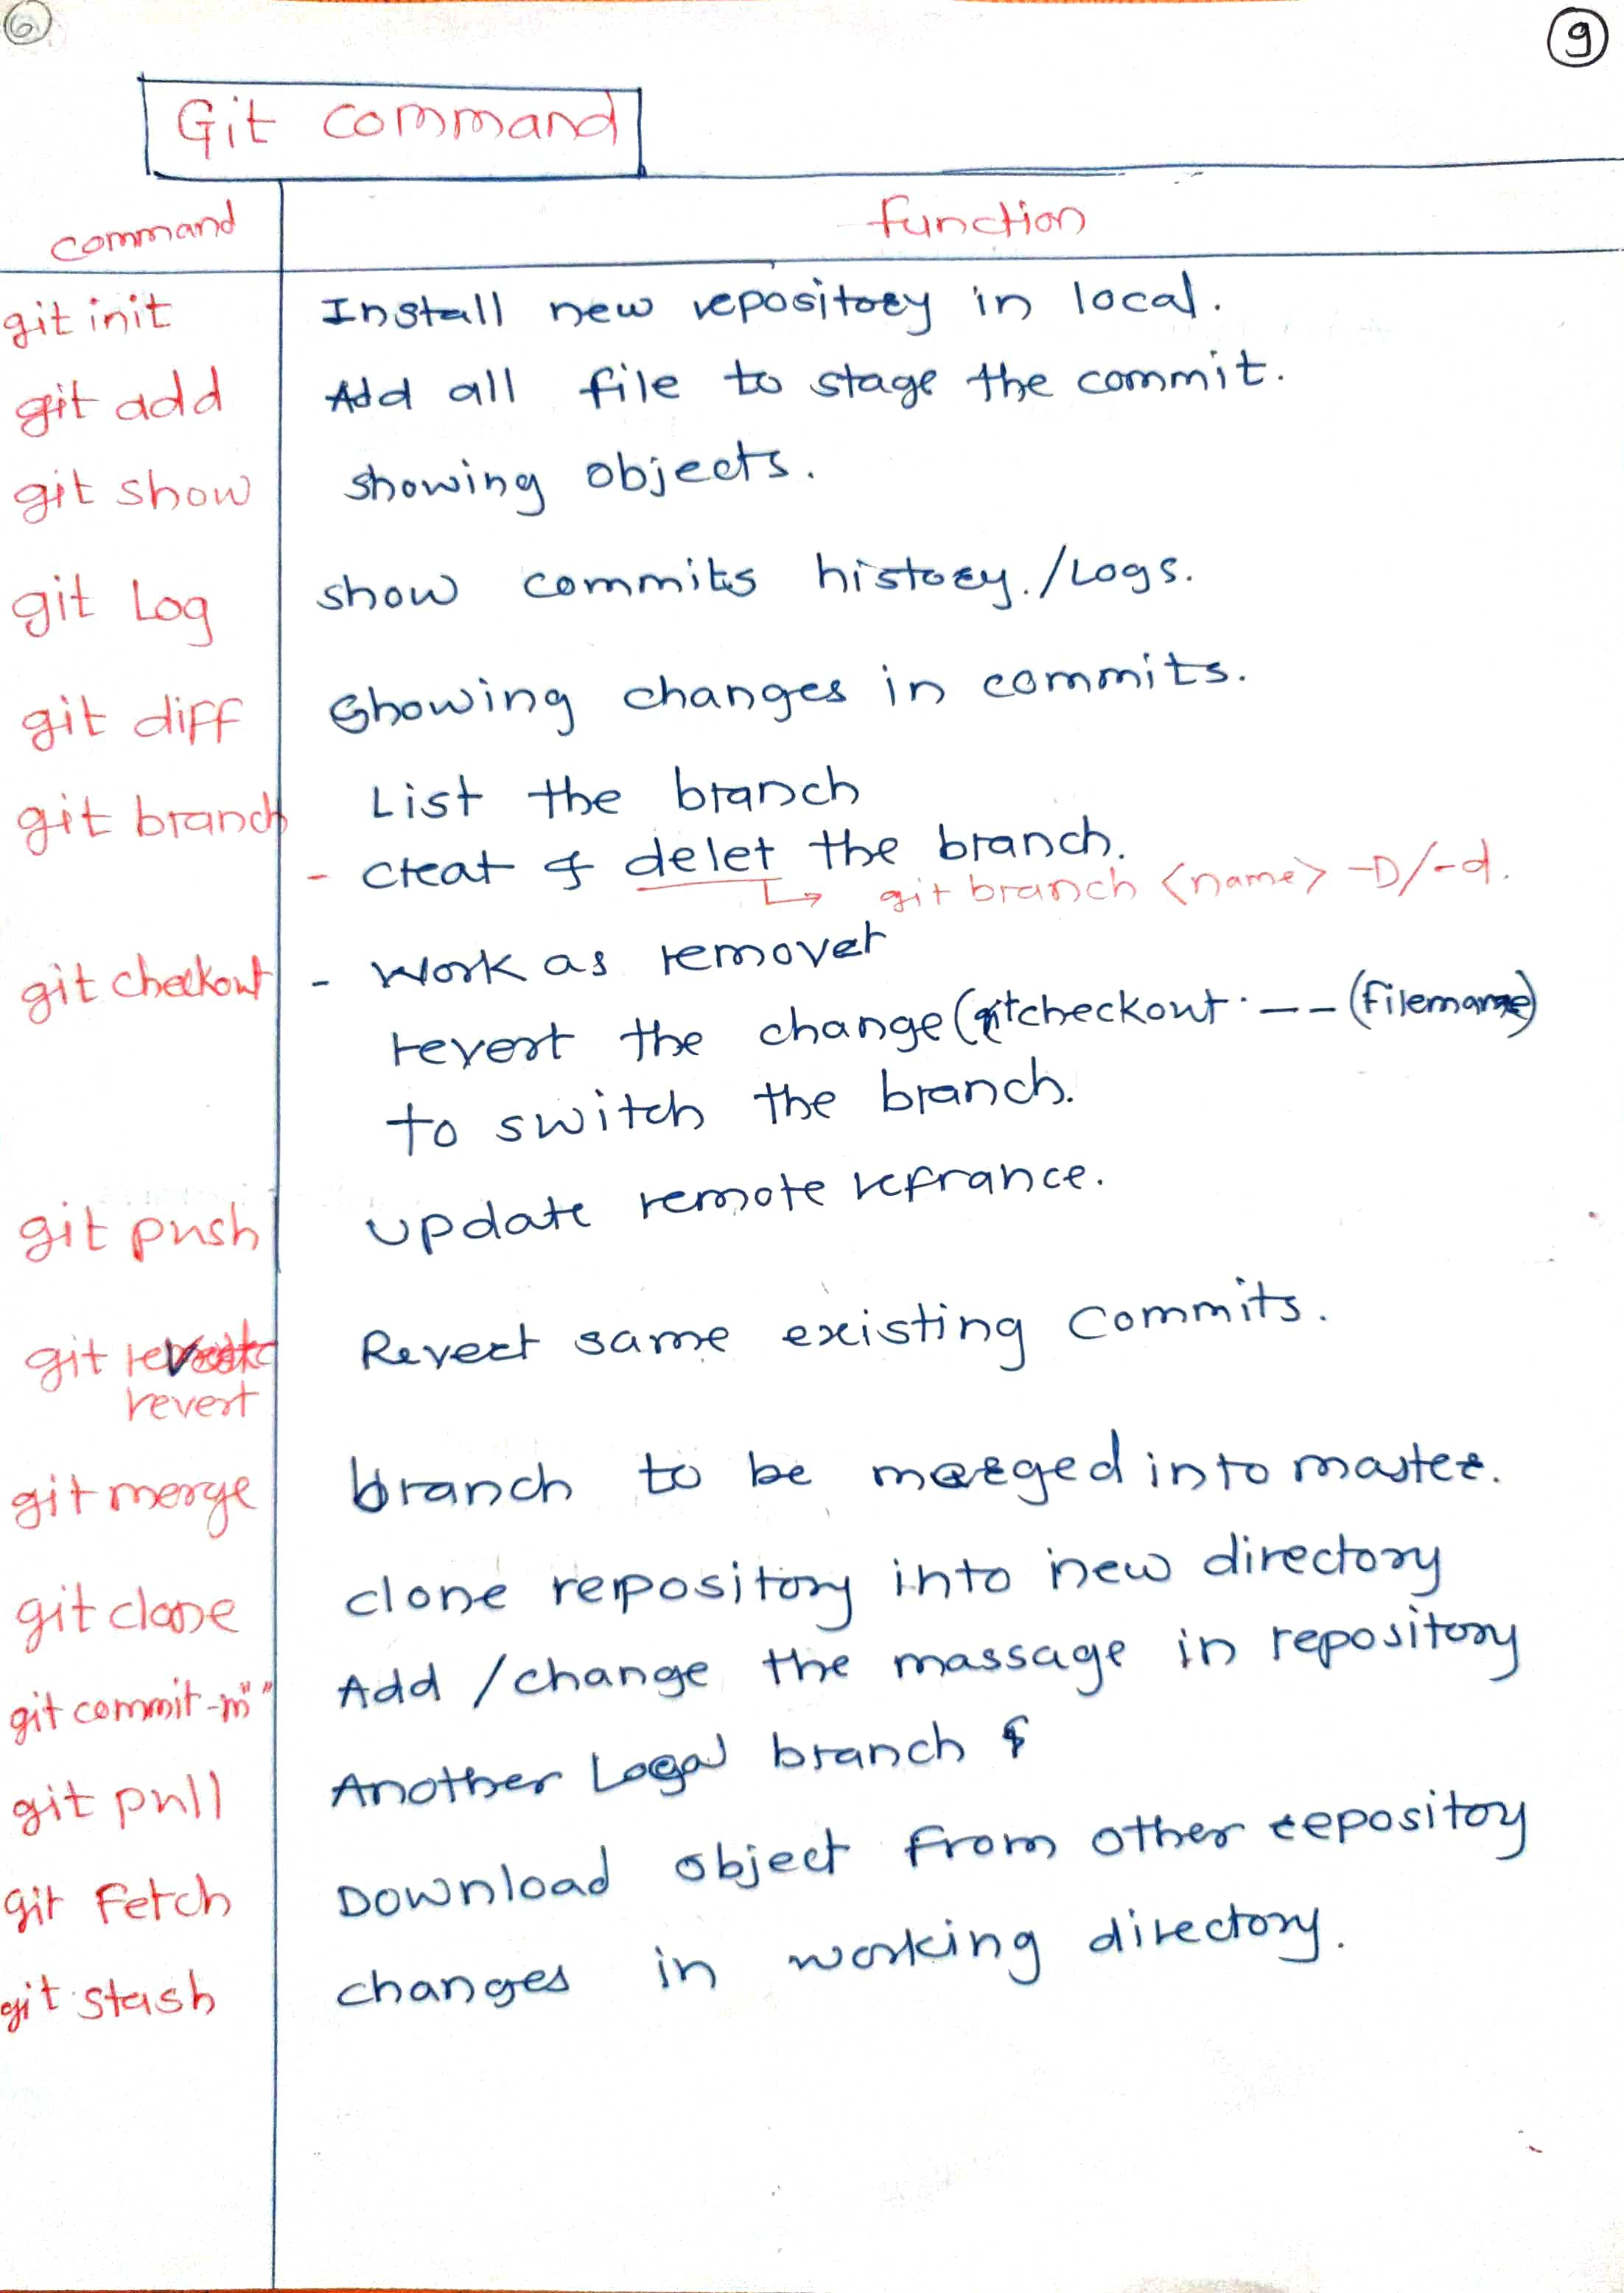 6
9
Git command
command function
git init Install new repository in local.
git add Add all file to stage the commit.
git show showing objects.
git Log show commits history./Logs.
git diff showing changes in commits.
git branch List the branch
- creat & delet the branch.
↳ git branch <name> -D/-d.
git checkout - Work as remover
revert the change (git checkout . -- (filename)
to switch the branch.
git push update remote refrance.
git
revert Revert same existing commits.
git merge branch to be merged into master.
git clone clone repository into new directory
git commit -m" " Add /change the massage in repository
git pull Another Local branch &
git Fetch Download object from other repository
git stash changes in working directory.